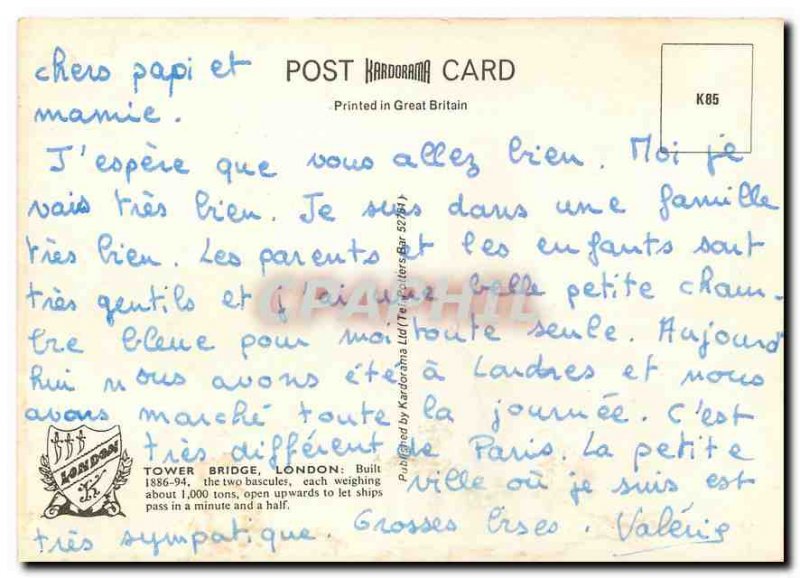 POST KARDORAMA CARD
Printed in Great Britain
K85
chers papi et
mamie.
J'espère que vous allez bien. Moi je
vais très bien. Je suis dans une famille
très bien. Les parents et les enfants sont
très gentils et j'ai une belle petite cham-
bre bleue pour moi toute seule. Aujourd'
hui nous avons été à Londres et nous
avons marché toute la journée. C'est
très différent de Paris. La petite
ville où je suis est
très sympatique. Grosses bises. Valérie
Published by Kardorama Ltd (Tel Potters Bar 52781)
CPAPHIL
LONDON
TOWER BRIDGE, LONDON: Built
1886-94, the two bascules, each weighing
about 1,000 tons, open upwards to let ships
pass in a minute and a half.